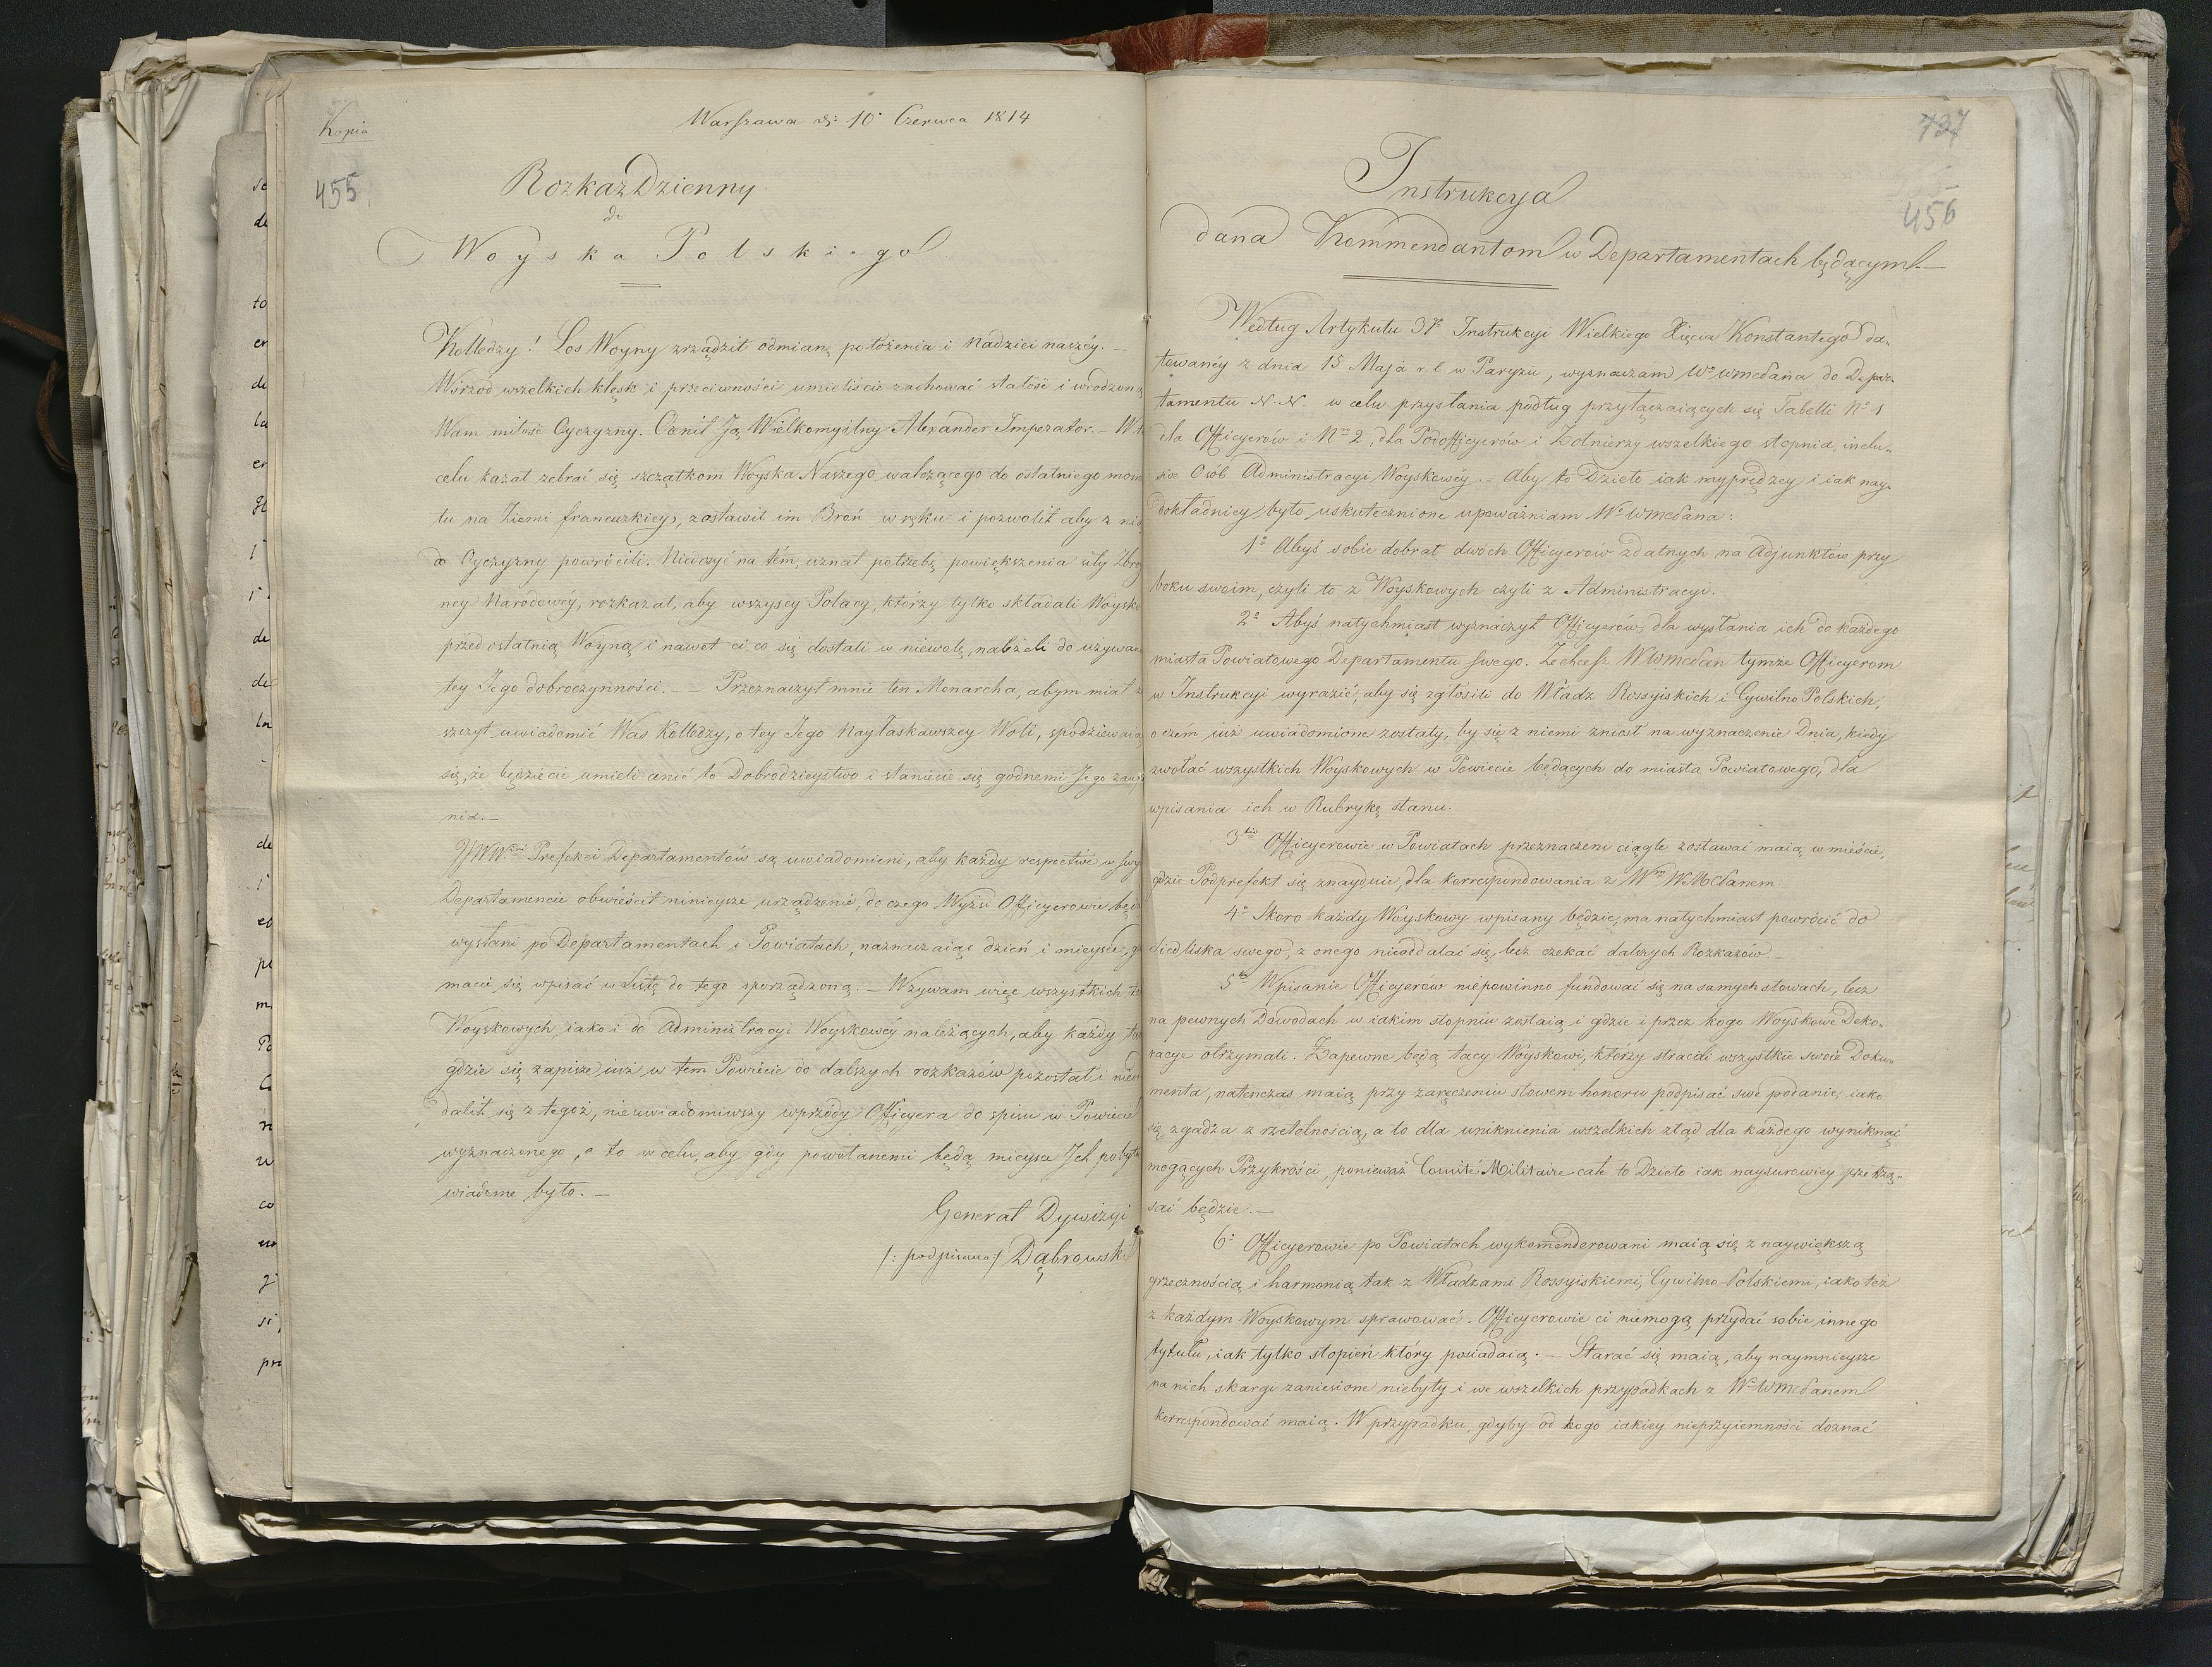 Kopia
Warszawa d: 10. Czerwca 1814
455
Rozkaz Dzienny
do
Woyska Polskiego
Kolledzy! Los Woyny zrządził odmianę położenia i Nadziei naszéy. —
Wśrzod wszelkich klęsk i przeciwności umieliście zachować stałość i wrodzoną
Wam miłość Oyczyzny. Cenił Ją Wielkomyślny Alexander Imperator. — W
celu kazał zebrać się szczątkom Woyska Naszego, walczącego do ostatniego mom
tu na Ziemi francuzkiey, zostawił im Broń w ręku i pozwolił aby z nią
do Oyczyzny powrócili. Niedosyć na tém, uznał potrzebę powiększenia siły Zbro
ney Narodowéy, rozkazał, aby wszyscy Polacy, którzy tylko składali Woysko
przed ostatnią Woyną i nawet ci co się dostali w niewolę, należeli do używan
tey Jego dobroczynności. — Przeznaczył mnie ten Monarcha, abym miał z
szczyt uwiadomić Was Kolledzy, o tey Jego Nayłaskawszey Woli, spodziewaiąc
się, że będziecie umieli cenić to Dobrodzieystwo i staniecie się godnemi Jego zauf
nia. —
JWWni Prefekci Departamentów są uwiadomieni, aby każdy respective w swy
Departamencie obwieścił ninieysze urządzenie, do czego Wyżsi Officyerowie będą
wysłani po Departamentach i Powiatach, naznaczaiąc dzień i mieysce, g
macie się wpisać w Listę do tego sporządzoną. — Wzywam więc wszystkich
Woyskowych, iako i do Administracyi Woyskowéy należących, aby każdy tam
gdzie się zapisze iuż w tem Powiecie do dalszych rozkazów pozostał i nie
dalił się z tegoż, nieuwiadomiwszy wprzódy Officyera do spisu w Powiecie
wyznaczonego, a to w celu, aby gdy powołanemi będą mieysce Ich pobytu
wiadome było. —
Generał Dywizyi
/: podpisano :/ Dąbrowski
727
456
Instrukcya
dana Kommendantom w Departamentach będącym. —
Według Artykułu 3go Instrukcyi Wielkiego Xięcia Konstantego da-
towanéy z dnia 15 Maja r. b. w Paryżu, wyznaczam Wo WmcPana do Depar-
tamentu N. N. w celu przysłania podług przyłączaiących się Tabelli No 1
dla Officyerów i Nro 2, dla Podofficyerów i Żołnierzy wszelkiego stopnia, inclu-
sive Osób Administracyi Woyskowéy. — Aby to Dzieło iak nayprędzey i iak nay-
dokładniey było uskutecznione upoważniam Wo WmcPana:
1o Abyś sobie dobrał dwóch Officyerów zdatnych na Adjunktów przy
boku swoim, czyli to z Woyskowych czyli z Administracyi.
2o Abyś natychmiast wyznaczył Officyerów, dla wysłania ich do każdego
miasta Powiatowego Departamentu swego. Zechcesz WWmcPan tymże Officyerom
w Instrukcyi wyrazić, aby się zgłosili do Władz Rossyiskich i Cywilno Polskich,
o czém iuż uwiadomione zostały, by się z niemi zniosł na wyznaczenie Dnia, kiedy
zwołać wszystkich Woyskowych w Powiecie będących do miasta Powiatowego, dla
wpisania ich w Rubrykę stanu.
3tio Officyerowie w Powiatach przeznaczeni ciągle zostawać maią w mieście,
gdzie Podprefekt się znayduie, dla korrespondowania z Wm WMcPanem
4o Skoro każdy Woyskowy wpisany będzie, ma natychmiast powrócić do
Siedliska swego, z onego nieoddalać się, lecz czekać dalszych Rozkazów. —
5to Wpisanie Officyerów niepowinno fundować się na samych słowach, lecz
na pewnych Dowodach w iakim stopniu zostaią i gdzie i przez kogo Woyskowe Deko-
racye otrzymali. Zapewne będą tacy Woyskowi, którzy stracili wszystkie swoie Doku-
menta, natenczas maią przy zaręczeniu słowem honoru podpisać swe podanie, iako
się zgadza z rzetelnością, a to dla uniknienia wszelkich ztąd dla każdego wyniknąć
mogących Przykrości, ponieważ Comité Militaire całe to Dzieło iak naysurowiey prze trzą-
sać będzie. —
6o Officyerowie po Powiatach wykommenderowani maią się z naywiększą
grzecznością i harmonią tak z Władzami Rossyiskiemi, Cywilno-Polskiemi, iako też
z każdym Woyskowym sprawować. Officyerowie ci niemogą przydać sobie innego
tytułu, iak tylko stopień który posiadaią. — Starać się maią, aby naymnieysze
na nich skargi zaniesione niebyły i we wszelkich przypadkach z Wo WmcPanem
korrespondować maią. W przypadku, gdyby od kogo iakiey nieprzyiemności doznać